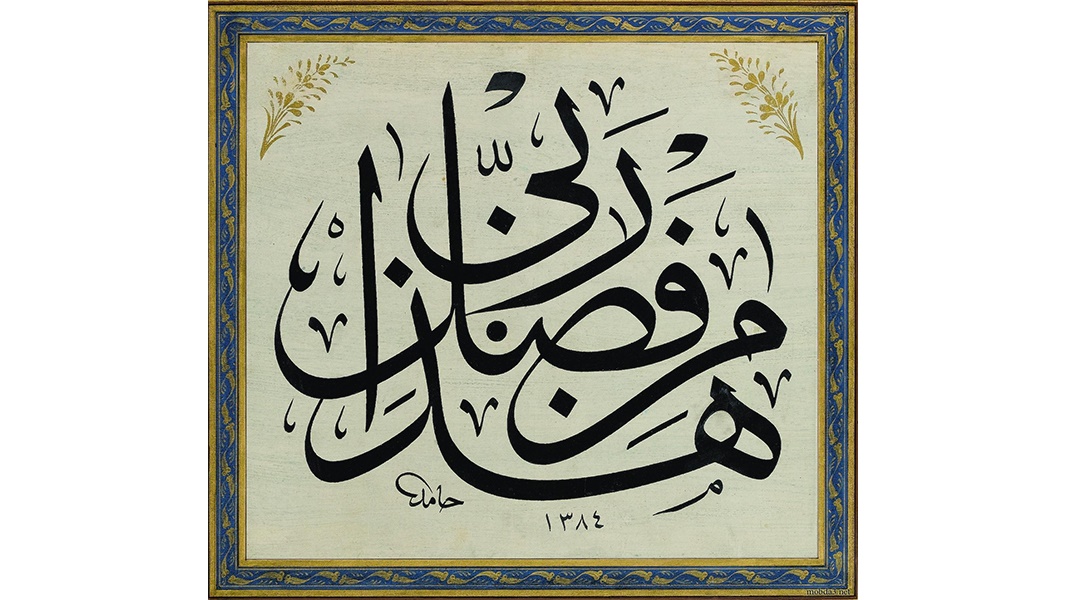 هذا من فضل ربي
حامد
١٣٨٤
mobda3.net